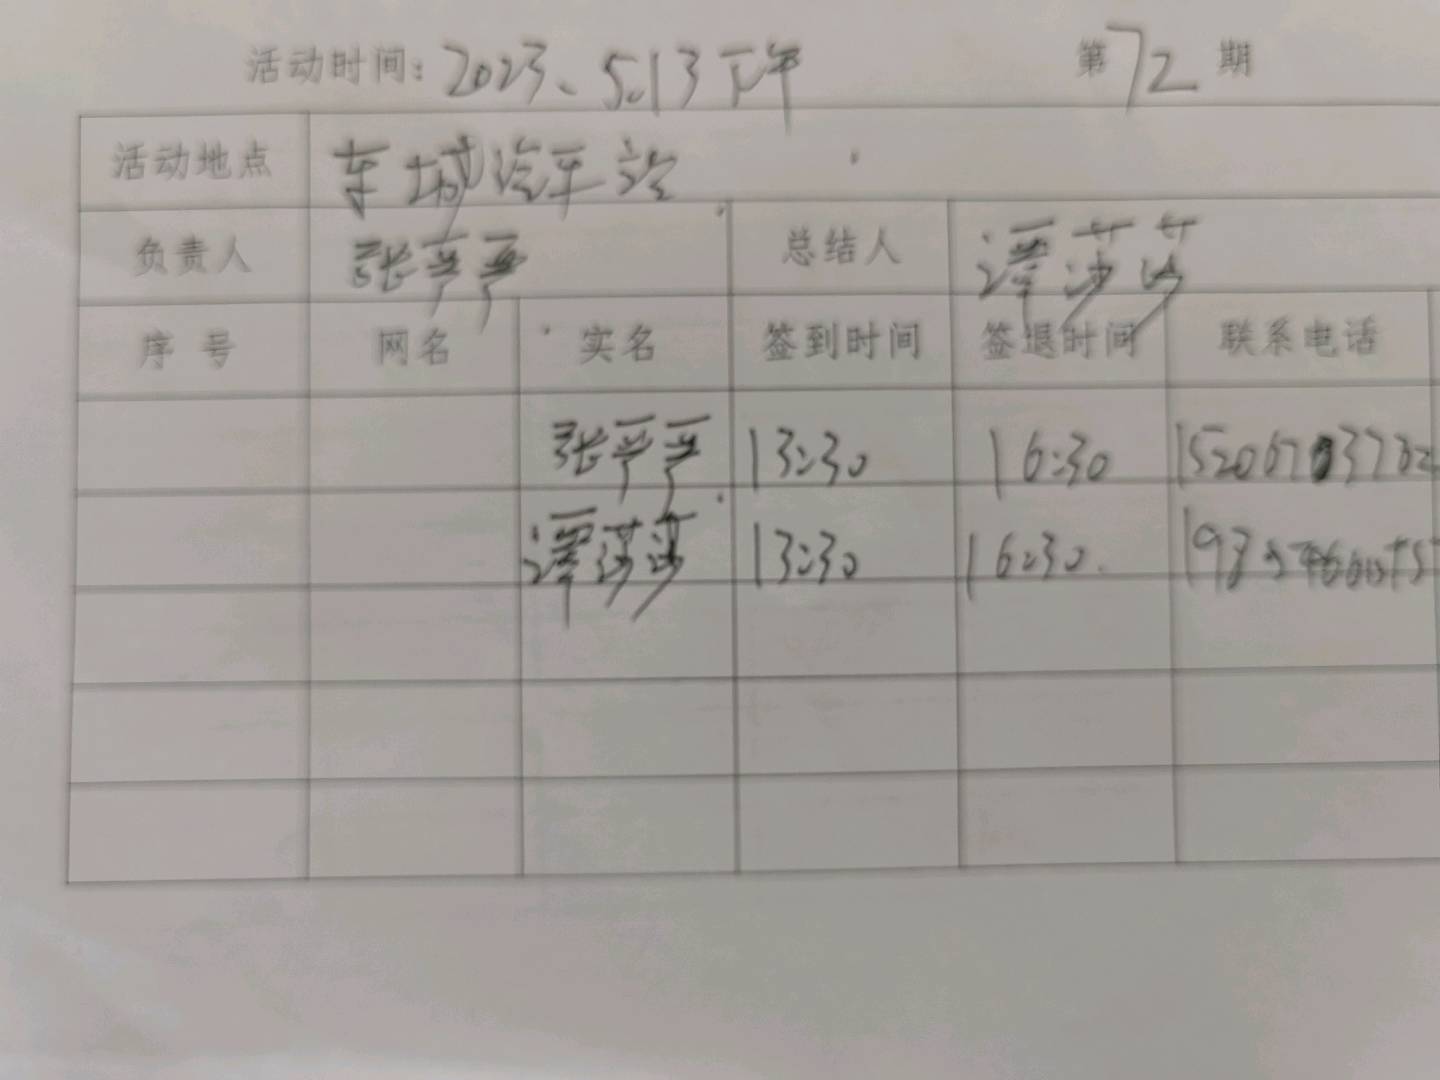 活动时间: 2023、5.13下午 第72期
活动地点 车城汽车站
负责人 张严严 总结人 谭莎莎
序号 网名 实名 签到时间 签退时间 联系电话
张严严 13:30 16:30
谭莎莎 13:30 16:30